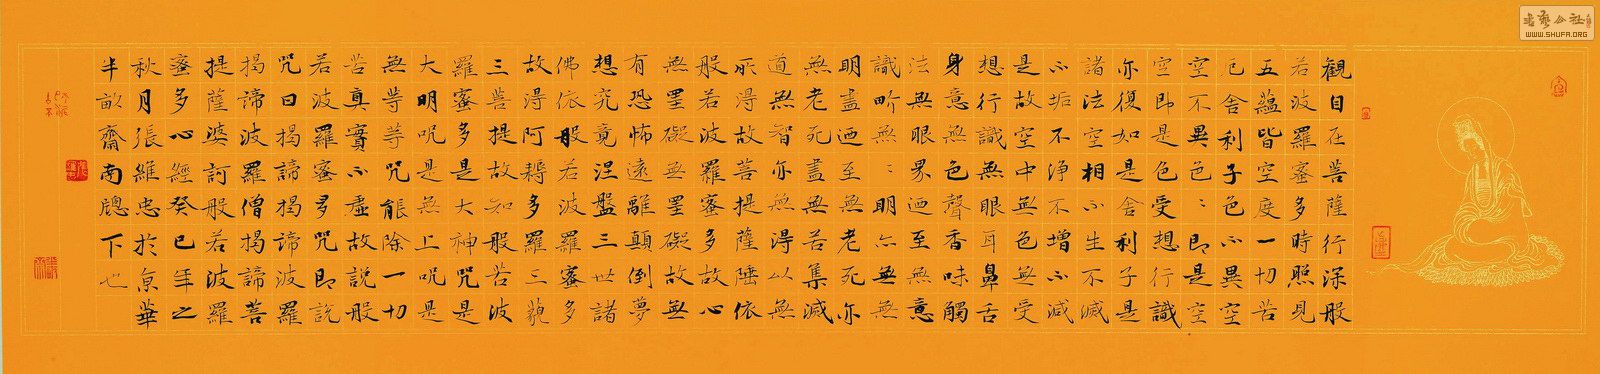 觀自在菩薩行深般
若波羅蜜多時照見
五蘊皆空度一切苦
厄舍利子色不異空
空不異色〻即是空
空即是色受想行識
亦復如是舍利子是
諸法空相不生不滅
不垢不淨不增不減
是故空中無色無受
想行識無眼耳鼻舌
身意無色聲香味觸
法無眼界迺至無意
識界無〻明亦無無
明盡迺至無老死亦
無老死盡無苦集滅
道無智亦無得以無
所得故菩提薩埵依
般若波羅蜜多故心
無罣礙無罣礙故無
有恐怖遠離顛倒夢
想究竟涅盤三世諸
佛依般若波羅蜜多
故得阿耨多羅三藐
三菩提故知般若波
羅蜜多是大神咒是
大明咒是無上咒是
無等等咒能除一切
苦真實不虛故說般
若波羅蜜多咒即說
咒曰揭諦揭諦波羅
揭諦波羅僧揭諦菩
提薩婆訶般若波羅
蜜多心經癸巳年之
秋月張維忠於京華
半畝齋南牕下也
书艺公社
WWW.SHUFA.ORG